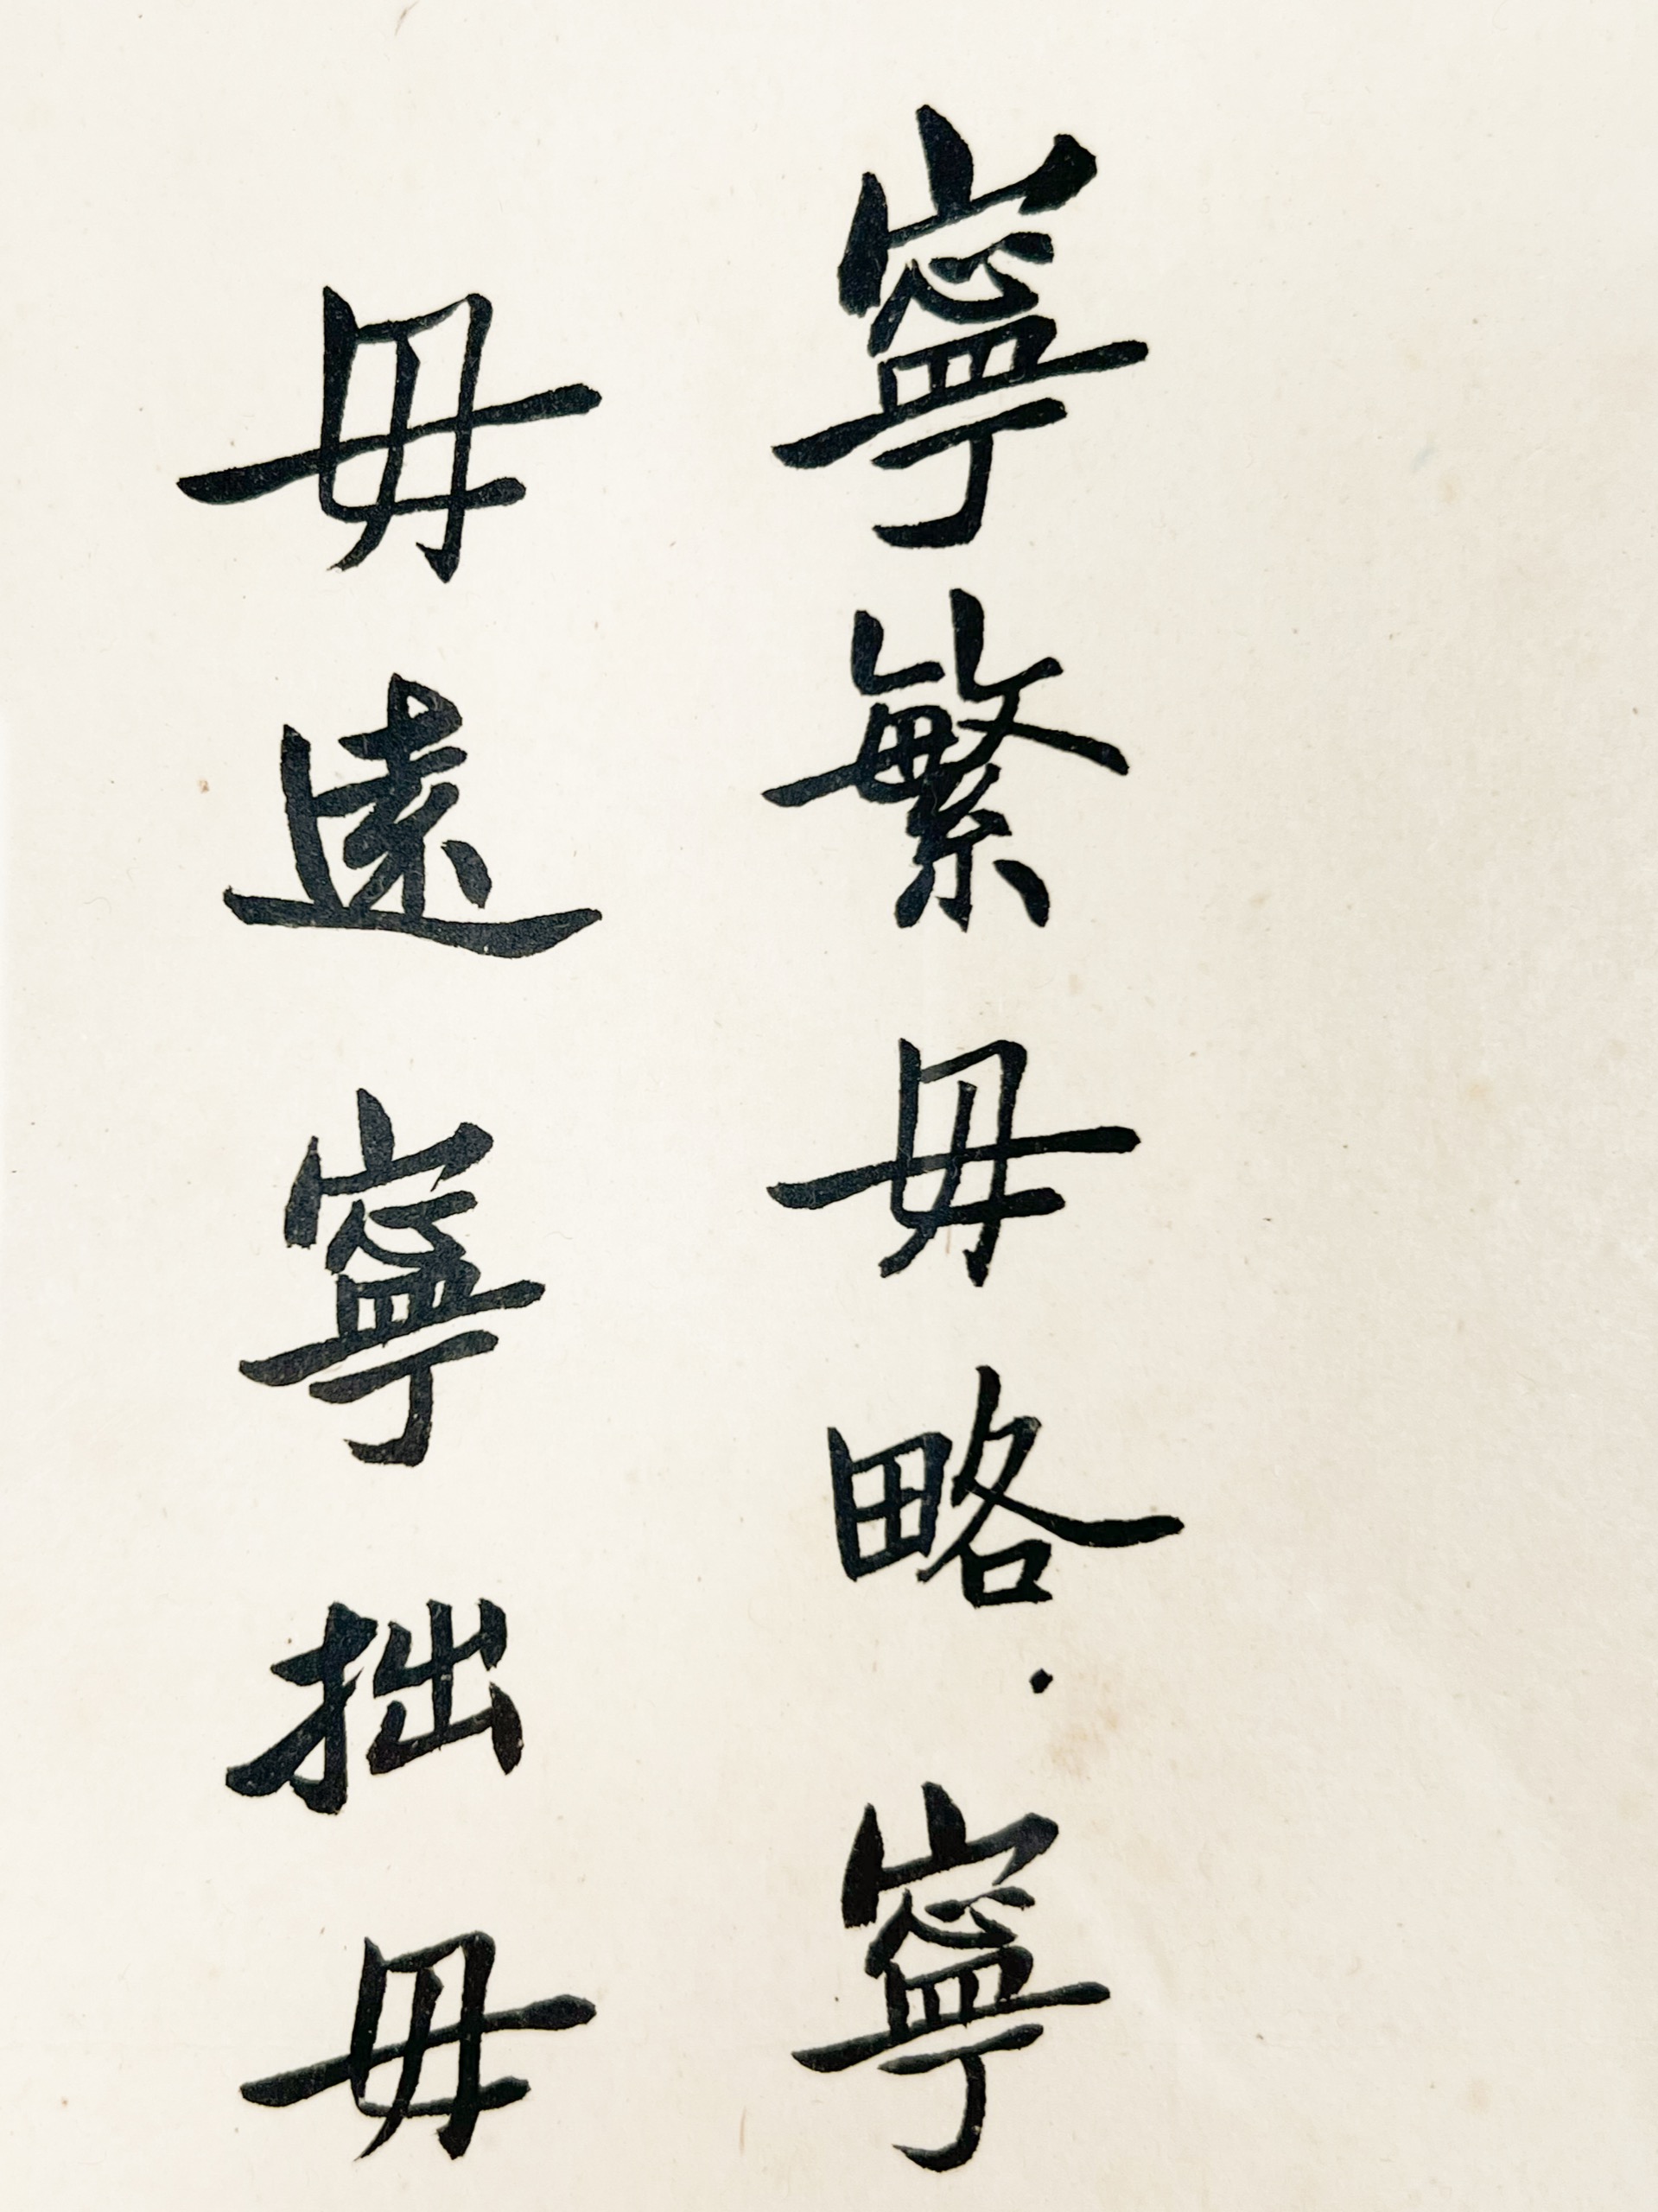 寧繁毋略·寧
毋遠寧拙毋